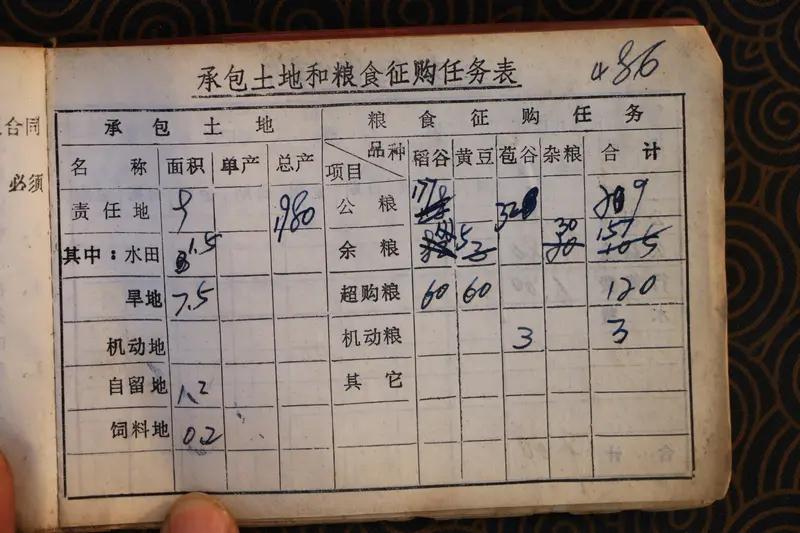 合同
必须
承包土地和粮食征购任务表 486
承包土地 粮食征购任务
名称 面积 单产 总产 项目 品种 稻谷 黄豆 苞谷 杂粮 合计
责任地 9 1980 公粮 209
其中：水田 1.5 余粮 30 157
旱地 7.5 超购粮 60 60 120
机动地 机动粮 3 3
自留地 1.2 其它
饲料地 0.2